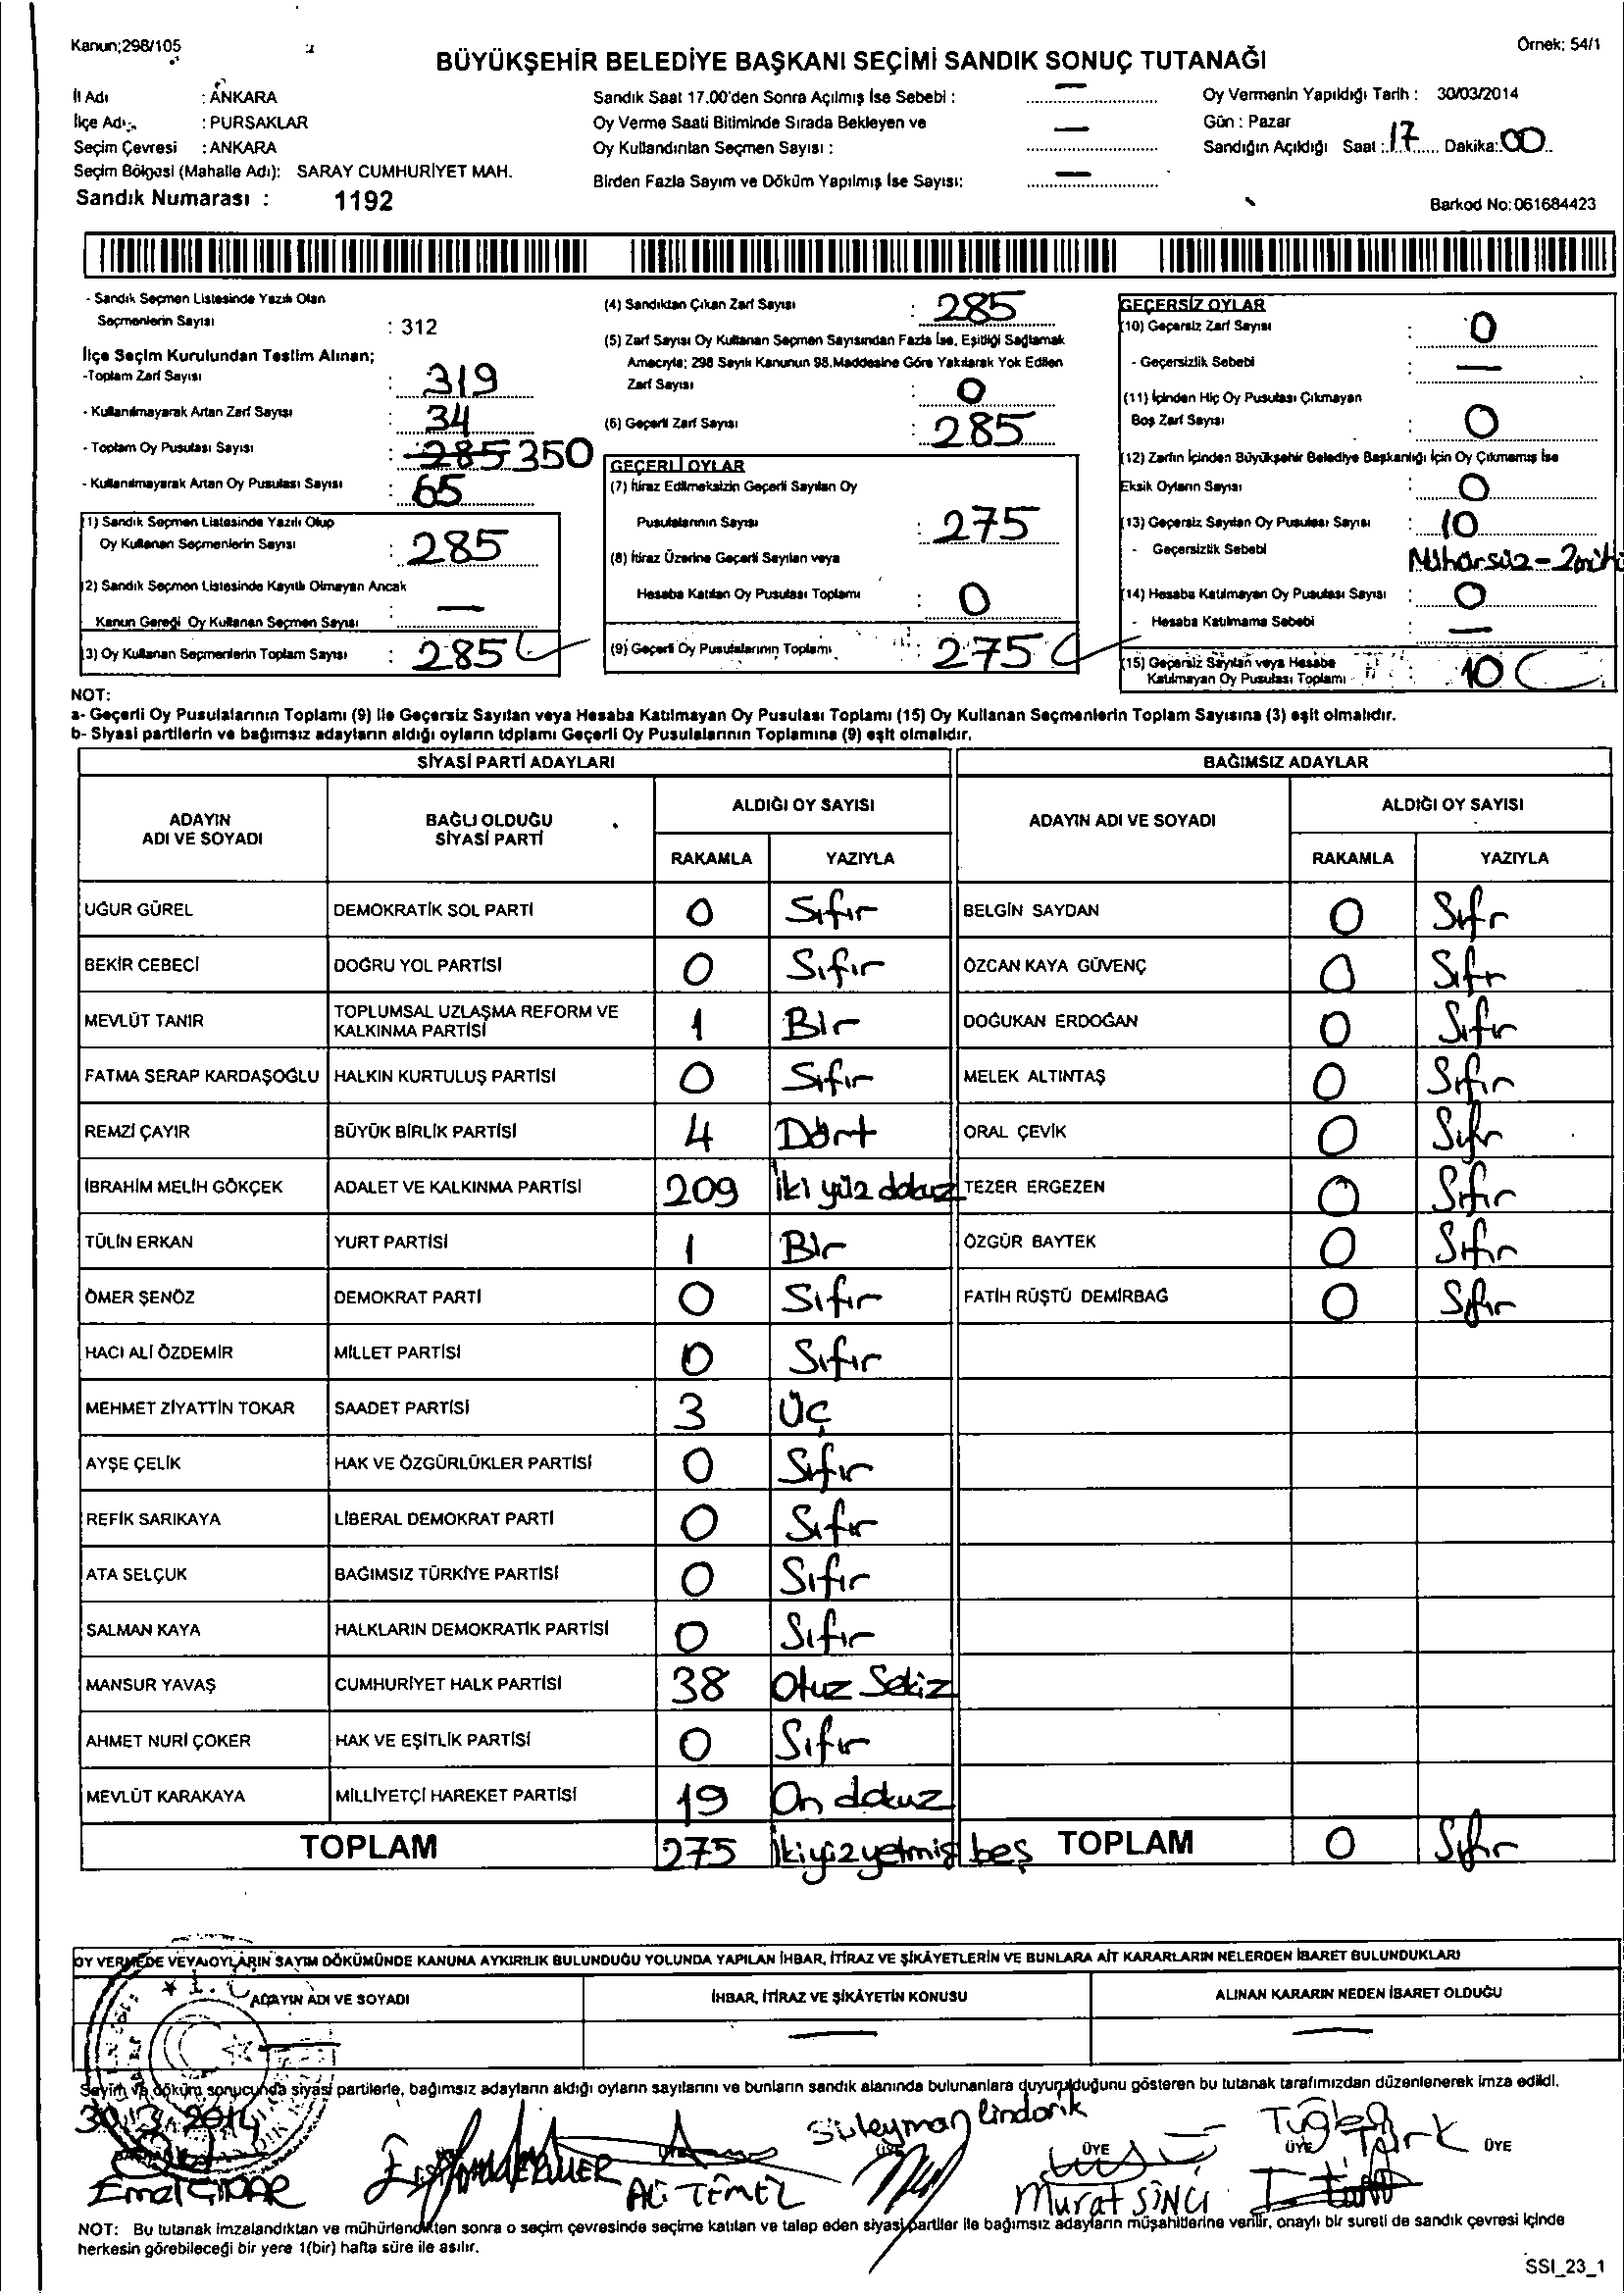 Kanun;298/105
Örnek: 54/1
BÜYÜKŞEHİR BELEDİYE BAŞKANI SEÇİMİ SANDIK SONUÇ TUTANAĞI
İl Adı : ANKARA
İlçe Adı : PURSAKLAR
Seçim Çevresi : ANKARA
Seçim Bölgesi (Mahalle Adı): SARAY CUMHURİYET MAH.
Sandık Numarası : 1192
Sandık Saat 17.00'den Sonra Açılmış İse Sebebi : —
Oy Verme Saati Bitiminde Sırada Bekleyen ve
Oy Kullandırılan Seçmen Sayısı : —
Birden Fazla Sayım ve Döküm Yapılmış İse Sayısı: —
Oy Vermenin Yapıldığı Tarih : 30/03/2014
Gün : Pazar
Sandığın Açıldığı Saat : 17 Dakika: 00
Barkod No:061684423
- Sandık Seçmen Listesinde Yazılı Olan
Seçmenlerin Sayısı : 312
İlçe Seçim Kurulundan Teslim Alınan;
-Toplam Zarf Sayısı : 319
- Kullanılmayarak Artan Zarf Sayısı : 34
- Toplam Oy Pusulası Sayısı : 285 350
- Kullanılmayarak Artan Oy Pusulası Sayısı : 65
(1) Sandık Seçmen Listesinde Yazılı Olup
Oy Kullanan Seçmenlerin Sayısı : 285
(2) Sandık Seçmen Listesinde Kayıtlı Olmayan Ancak
Kanun Gereği Oy Kullanan Seçmen Sayısı : —
(3) Oy Kullanan Seçmenlerin Toplam Sayısı : 285
(4) Sandıktan Çıkan Zarf Sayısı : 285
(5) Zarf Sayısı Oy Kullanan Seçmen Sayısından Fazla İse, Eşitliği Sağlamak
Amacıyla; 298 Sayılı Kanunun 98.Maddesine Göre Yakılarak Yok Edilen
Zarf Sayısı : 0
(6) Geçerli Zarf Sayısı : 285
GEÇERLİ OYLAR
(7) İtiraz Edilmeksizin Geçerli Sayılan Oy
Pusulalarının Sayısı : 275
(8) İtiraz Üzerine Geçerli Sayılan veya
Hesaba Katılan Oy Pusulası Toplamı : 0
(9) Geçerli Oy Pusulalarının Toplamı : 275
GEÇERSİZ OYLAR
(10) Geçersiz Zarf Sayısı : 0
- Geçersizlik Sebebi : —
(11) İçinden Hiç Oy Pusulası Çıkmayan
Boş Zarf Sayısı : 0
(12) Zarfın İçinden Büyükşehir Belediye Başkanlığı İçin Oy Çıkmamış İse
Eksik Oyların Sayısı : 0
(13) Geçersiz Sayılan Oy Pusulası Sayısı : 10
- Geçersizlik Sebebi
(14) Hesaba Katılmayan Oy Pusulası Sayısı : 0
- Hesaba Katılmama Sebebi : —
(15) Geçersiz Sayılan veya Hesaba
Katılmayan Oy Pusulası Toplamı : 10
NOT:
a- Geçerli Oy Pusulalarının Toplamı (9) ile Geçersiz Sayılan veya Hesaba Katılmayan Oy Pusulası Toplamı (15) Oy Kullanan Seçmenlerin Toplam Sayısına (3) eşit olmalıdır.
b- Siyasi partilerin ve bağımsız adayların aldığı oyların toplamı Geçerli Oy Pusulalarının Toplamına (9) eşit olmalıdır.
SİYASİ PARTİ ADAYLARI BAĞIMSIZ ADAYLAR
ADAYIN ADI VE SOYADI BAĞLI OLDUĞU SİYASİ PARTİ ALDIĞI OY SAYISI ADAYIN ADI VE SOYADI ALDIĞI OY SAYISI
RAKAMLA YAZIYLA RAKAMLA YAZIYLA
UĞUR GÜREL DEMOKRATİK SOL PARTİ 0 Sıfır BELGİN SAYDAN 0 Sıfr
BEKİR CEBECİ DOĞRU YOL PARTİSİ 0 Sıfır ÖZCAN KAYA GÜVENÇ 0 Sıfr
MEVLÜT TANIR TOPLUMSAL UZLAŞMA REFORM VE KALKINMA PARTİSİ 1 Bir DOĞUKAN ERDOĞAN 0 Sıfır
FATMA SERAP KARDAŞOĞLU HALKIN KURTULUŞ PARTİSİ 0 Sıfır MELEK ALTINTAŞ 0 Sıfır
REMZİ ÇAYIR BÜYÜK BİRLİK PARTİSİ 4 Dört ORAL ÇEVİK 0 Sıfr
İBRAHİM MELİH GÖKÇEK ADALET VE KALKINMA PARTİSİ 209 İki yüz dokuz TEZER ERGEZEN 0 Sıfır
TÜLİN ERKAN YURT PARTİSİ 1 Bir ÖZGÜR BAYTEK 0 Sıfır
ÖMER ŞENÖZ DEMOKRAT PARTİ 0 Sıfır FATİH RÜŞTÜ DEMİRBAĞ 0 Sıfır
HACI ALİ ÖZDEMİR MİLLET PARTİSİ 0 Sıfır
MEHMET ZİYATTİN TOKAR SAADET PARTİSİ 3 Üç
AYŞE ÇELİK HAK VE ÖZGÜRLÜKLER PARTİSİ 0 Sıfır
REFİK SARIKAYA LİBERAL DEMOKRAT PARTİ 0 Sıfır
ATA SELÇUK BAĞIMSIZ TÜRKİYE PARTİSİ 0 Sıfır
SALMAN KAYA HALKLARIN DEMOKRATİK PARTİSİ 0 Sıfır
MANSUR YAVAŞ CUMHURİYET HALK PARTİSİ 38 Otuz Sekiz
AHMET NURİ ÇOKER HAK VE EŞİTLİK PARTİSİ 0 Sıfır
MEVLÜT KARAKAYA MİLLİYETÇİ HAREKET PARTİSİ 19 On dokuz
TOPLAM 275 İkiyüzyetmiş beş TOPLAM 0 Sıfır
OY VERMEDE VEYA OYLARIN SAYIM DÖKÜMÜNDE KANUNA AYKIRILIK BULUNDUĞU YOLUNDA YAPILAN İHBAR, İTİRAZ VE ŞİKÂYETLERİN VE BUNLARA AİT KARARLARIN NELERDEN İBARET BULUNDUKLARI
ADAYIN ADI VE SOYADI İHBAR, İTİRAZ VE ŞİKÂYETİN KONUSU ALINAN KARARIN NEDEN İBARET OLDUĞU
— — —
Sayım ve döküm sonucunda siyasi partilerle, bağımsız adayların aldığı oyların sayılarını ve bunların sandık alanında bulunanlara duyurulduğunu gösteren bu tutanak tarafımızdan düzenlenerek imza edildi.
30.3.2014
Süleyman
Tuğba Türk
ÜYE ÜYE ÜYE ÜYE
Ali TEMEL
Murat SİNCİ
NOT: Bu tutanak imzalandıktan ve mühürlendikten sonra o seçim çevresinde seçime katılan ve talep eden siyasi partiler ile bağımsız adayların müşahitlerine verilir, onaylı bir sureti de sandık çevresi içinde
herkesin görebileceği bir yere 1(bir) hafta süre ile asılır.
SSI_23_1